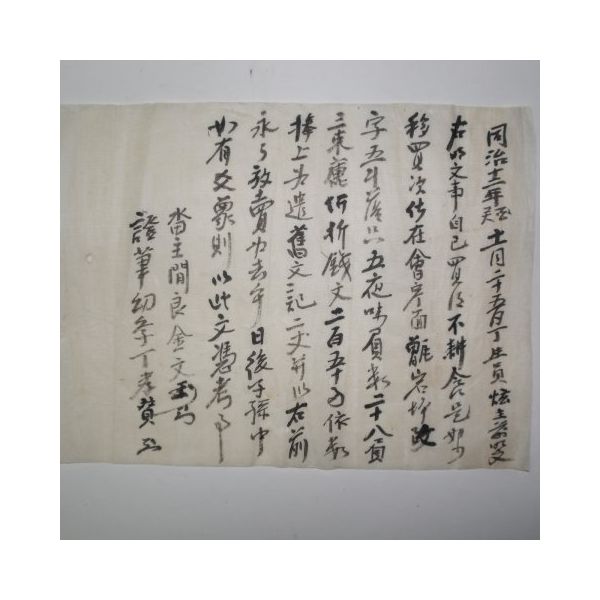 同治十二年癸酉十二月二十五日丁生員炫主前明文
右明文事自己買得不耕食是如
移買次伏在會寧面甑岩坪改
字五斗落只五夜味負數二十八負
三束廤價折錢文二百五十兩依數
捧上爲遣舊文記二丈幷以右前
永永放賣爲去乎日後子孫中
如有爻象則以此文憑考事
畓主閒良金文
證筆幼學丁孝贊